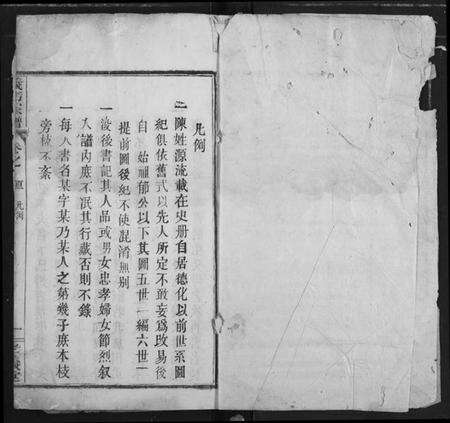 凡例
一陳姓源流載在史册自居德化以前世系圖
紀俱依舊式以先人所定不敢妄爲改易後
自 始祖郁公以下其圖五世一編六世一
提前圖後紀不使混淆無别
一後書記其人品或男女忠孝婦女節烈叙
入譜内庶不泯其行藏否則不錄
一每人書名某字某乃某人之第幾子庶本枝
旁枝不紊
凡例